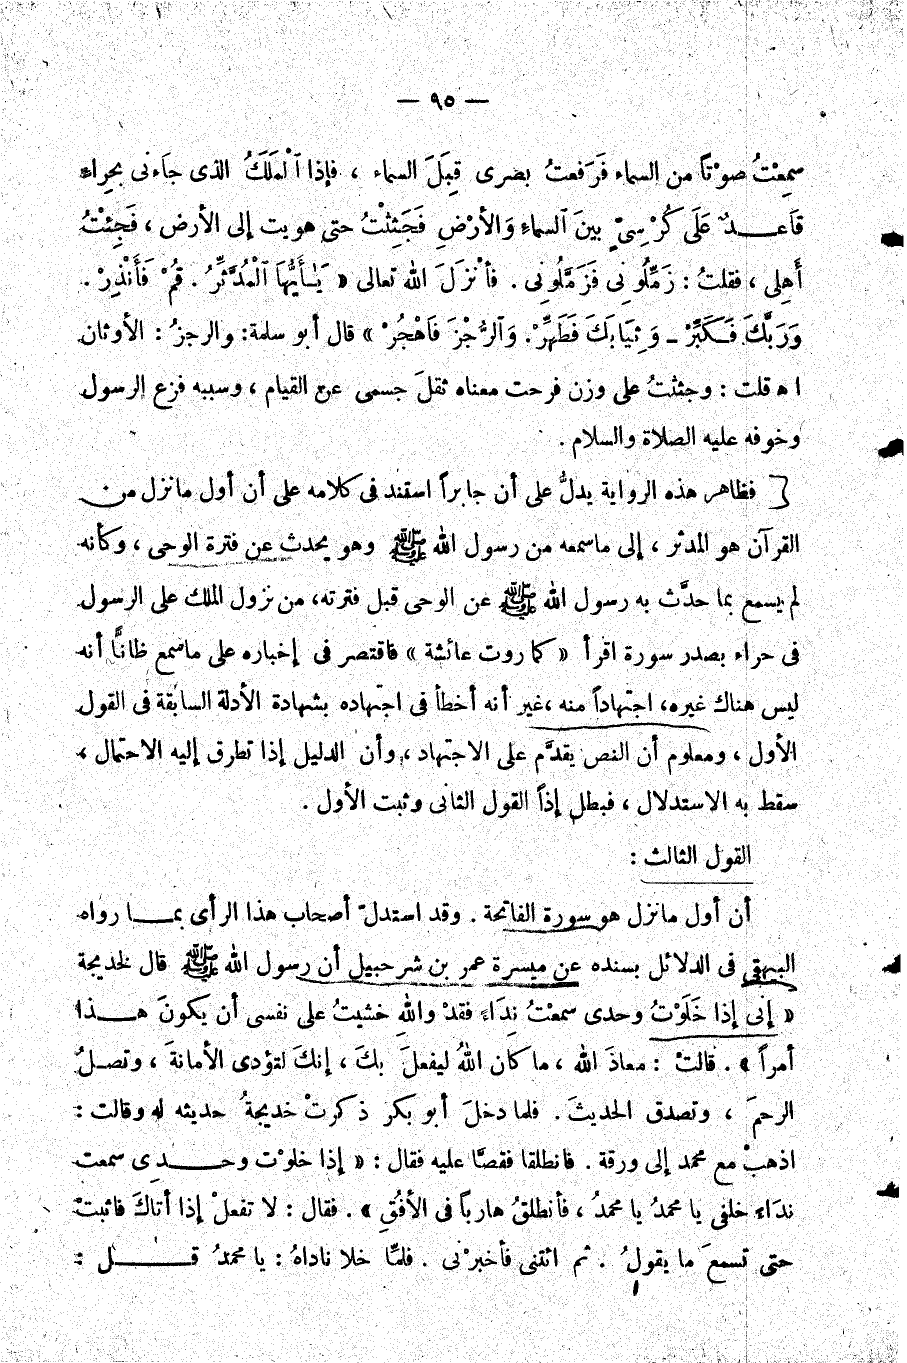 — ٩٥ —
سمِعْتُ صوْتاً من السماء فَرَفعتُ بصرى قِبَلَ السماء ، فإذا ٱلْمَلَكُ الذى جاءنى بحِراءَ
قاَعـدٌ عَلَى كُرْسِىّ بينَ ٱلسماءِ وَالأرْضِ فَجَثِثْتُ حتى هويت إلى الأرض ، فَجِئتُ
أَهلِى ، فقلتُ : زَمِّلُونِى فَزَمَّلُونِى . فأنْزلَ اللهُ تعالى « يَـٰأَيُّهَا ٱلْمُدَّثِّرُ . قُمْ فَأَنْذِرْ .
وَرَبَّكَ فَـكَبِّرْ ــ وَثِيَابَكَ فَطَهِّرْ. وَٱلرُّجْزَ فَاهْجُرْ » قال أبو سلمة: والرجزُ : الأوثان
اه قلت : وجثثْتُ على وزن فرحت معناه ثقلَ جسمى عن القيام ، وسببه فزع الرسول
وخوفه عليه الصلاة والسلام .
فظاهر هذه الرواية يدلُّ على أن جابراً استند فى كلامه على أن أول مانزل من
القرآن هو المدثر ، إلى ماسمعه من رسول الله ﷺ وهو يحدث عن فترة الوحى ، وكأنه
لم يسمع بما حدَّث به رسول الله ﷺ عن الوحى قبل فترته، من نزول الملك على الرسول
فى حراء بصدر سورة اقرأ « كما روت عائشة » فاقتصر فى إخباره على ماسمع ظانًّا أنه
ليس هناك غيره، اجتهاداً منه ،غير أنه أخطأ فى اجتهاده بشهادة الأدلة السابقة فى القول
الأول ، ومعلوم أن النص يقدَّم على الاجتهاد ، وأن الدليل إذا تطرق إليه الاحتمال ،
سقط به الاستدلال ، فبطل إذاً القول الثانى وثبت الأول .
القول الثالث :
أن أول مانزل هو سورة الفاتحة . وقد استدلّ أصحاب هذا الرأى بمـا رواه
البيهقى فى الدلائل بسنده عن ميسرة عمر بن شرحبيل أن رسول الله ﷺ قال لخديجة
« إنى إذا خَلَوْتُ وحدى سمعتُ نِدَاءً فقدْ واللهِ خشيتُ على نفسى أن يكونَ هـذا
أمراً » . قالتْ : معاذَ الله ، ما كان اللهُ ليفعلَ بكَ ، إنكَ لتؤدى الأمانةَ ، وتصـلُ
الرحمَ ، وتصدق الحديثَ . فلما دخلَ أبو بكر ذكرتْ خديجةُ حديثه له وقالت :
اذهبْ مع محمد إلى ورقة . فانطلقا فقصَّا عليه فقال : « إذا خلوْت وحـدى سمعت
ندَاء خلفى يا محمدُ يا محمدُ ، فأنطلقُ هارباً فى الأفُقِ » . فقال : لا تفعلْ إذا أتاكَ فاثبتْ
حتى تسمعَ ما يقولُ . ثم ائتنى فأخبرْنى . فلمَّا خلا ناداهُ : يا محمدُ قـل :